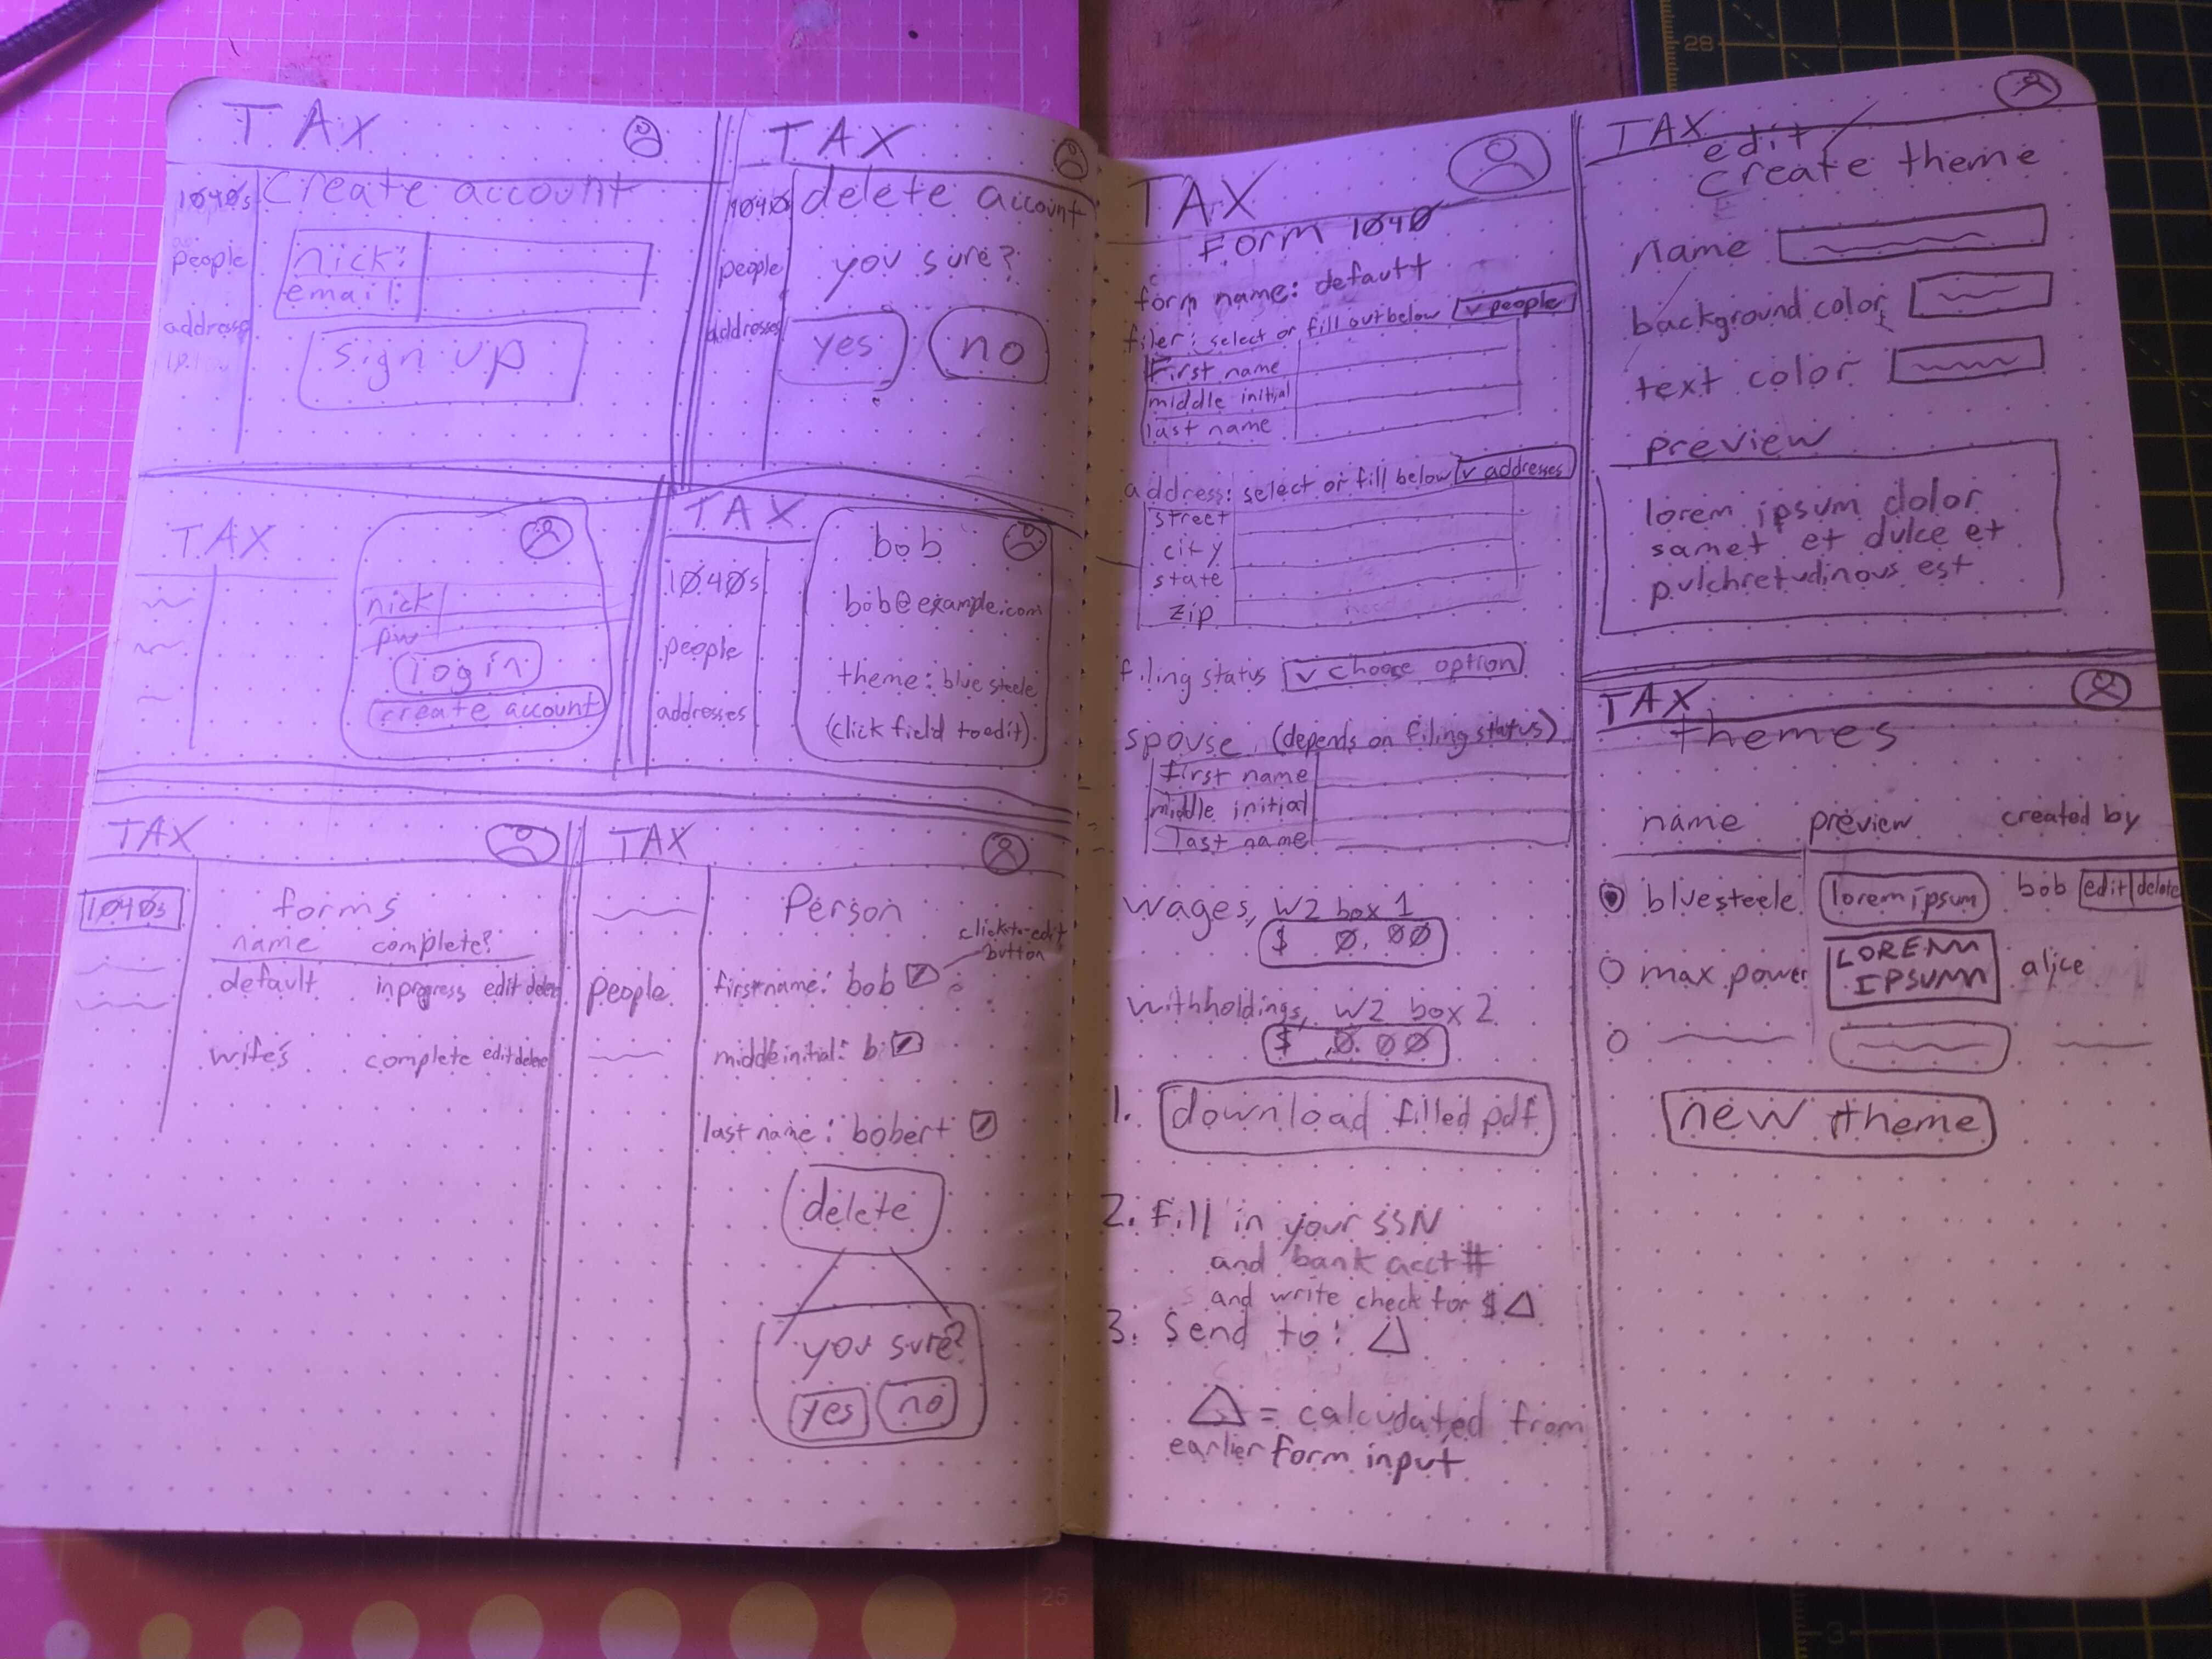 TAX
1040s
people
address
Create account
nick:
email:
sign up
TAX
1040s
people
addresses
delete account
you sure?
yes
no
TAX
nick
pw
login
create account
TAX
1040s
people
addresses
bob
bob@example.com
theme: blue steele
(click field to edit)
TAX
1040s
forms
name complete?
default in progress edit delete
wife's complete edit delete
TAX
people
Person
click-to-edit
button
first name: bob
middle initial: b
last name: bobert
delete
you sure?
yes no
TAX
Form 1040
form name: default
filer: select or fill out below v people
First name
middle initial
last name
address: select or fill below v addresses
street
city
state
zip
filing status v choose option
spouse (depends on filing status)
first name
middle initial
last name
wages, W2 box 1
$ 0.00
withholdings, W2 box 2
$ 0.00
1. download filled pdf
2. fill in your SSN
and bank acct #
and write check for $ △
3. Send to: △
△ = calculated from
earlier form input
TAX
edit /
create theme
name
background color
text color
preview
lorem ipsum dolor
samet et dulce et
pulchretudinous est
TAX
themes
name preview created by
blue steele lorem ipsum bob edit delete
max power LOREM IPSUM alice
new theme
28
2
1
25
3